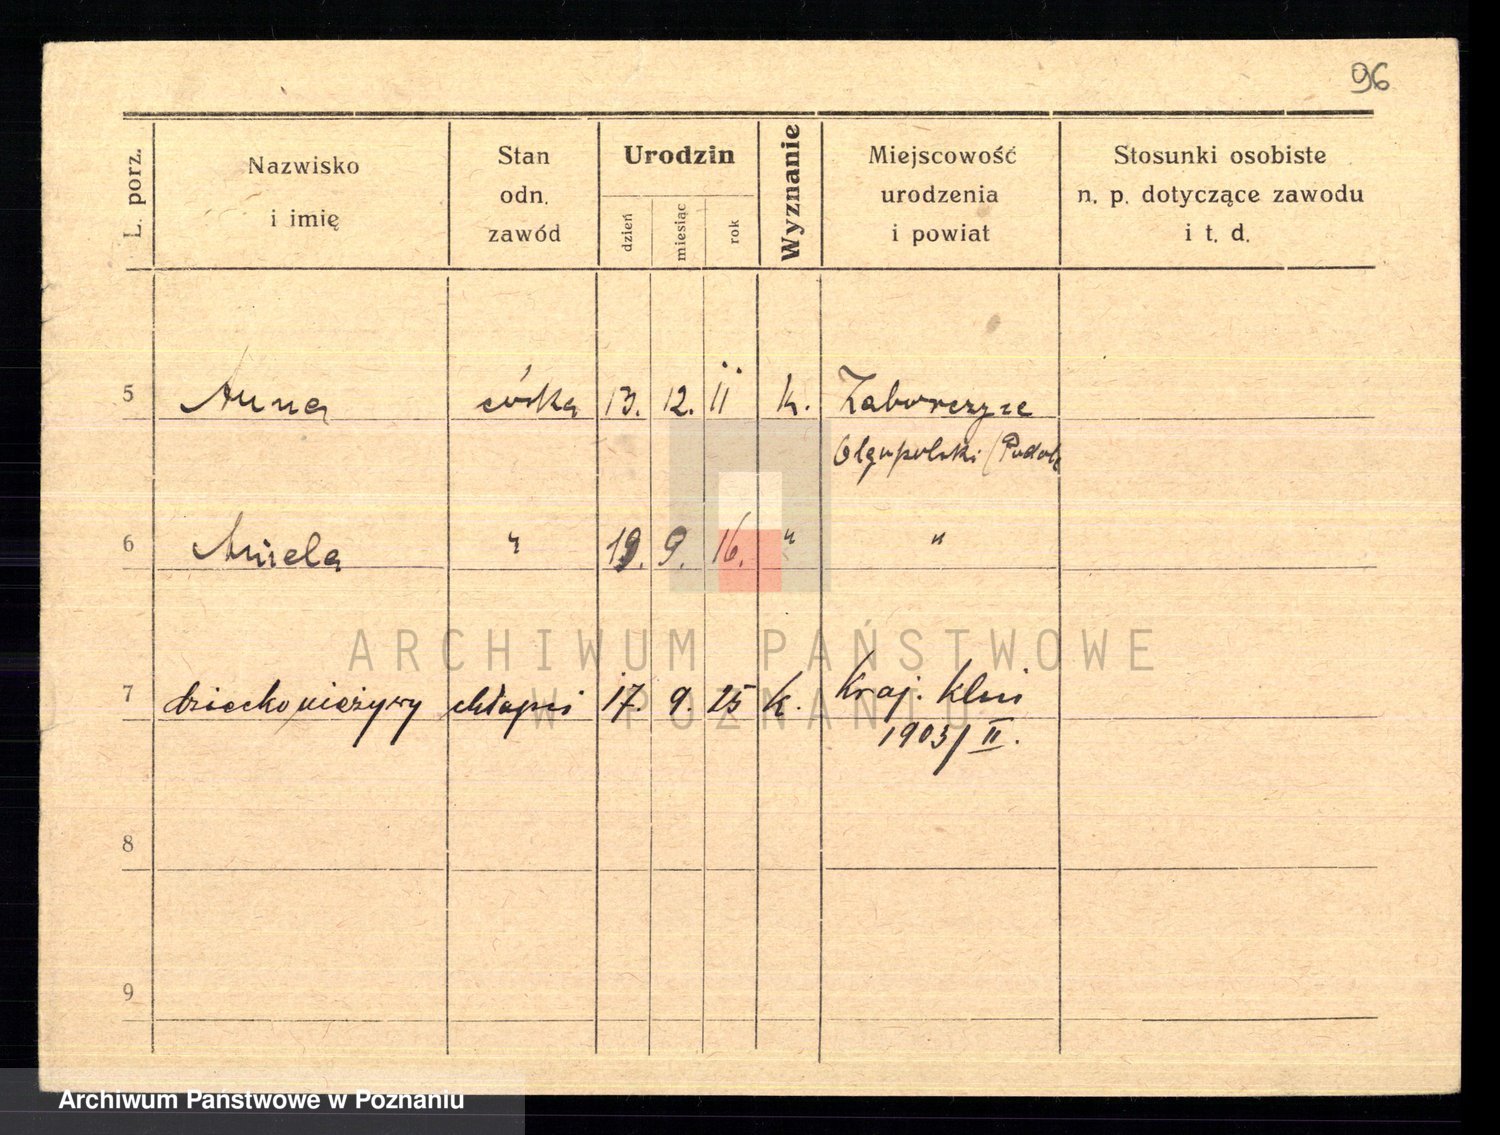 96
L. porz.
Nazwisko
i imię
Stan
odn.
zawód
Urodzin
dzień
miesiąc
rok
Wyznanie
Miejscowość
urodzenia
i powiat
Stosunki osobiste
n. p. dotyczące zawodu
i t. d.
5 Anna córka 13. 12. 11 k.
6 Aniela " 19. 9. 16. " "
ARCHIWUM PAŃSTWOWE
W POZNANIU
7 dziecko nieżywy 17. 9. 25 k. Kraj.
1903/II.
8
9
Archiwum Państwowe w Poznaniu